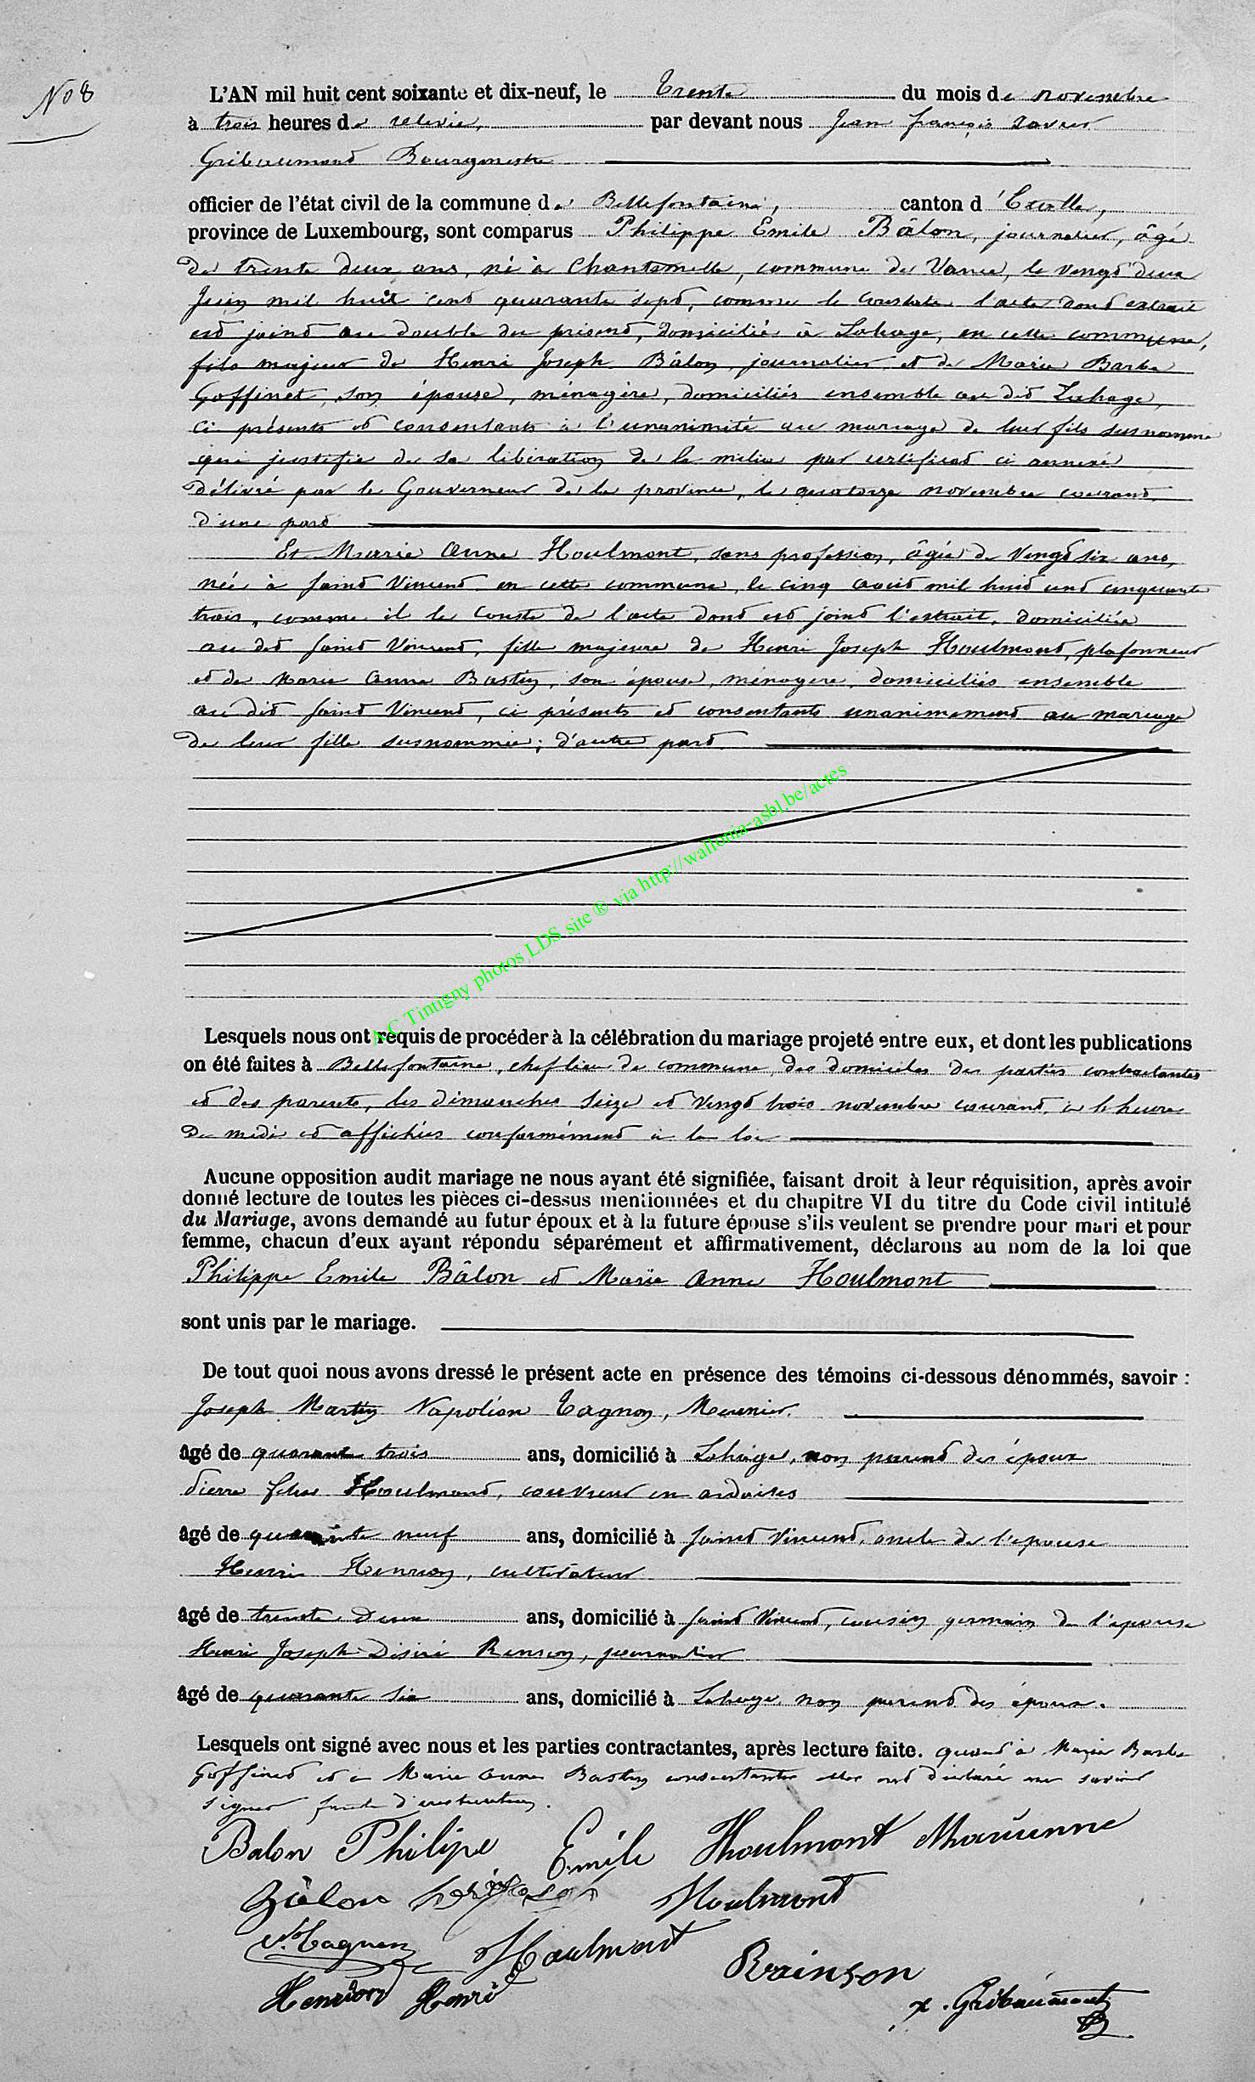 No 8
L'AN mil huit cent soixante et dix-neuf, le Trente du mois de novembre
à trois heures de relevée, par devant nous Jean françois xavier
Gribaumont Bourgmestre
officier de l'état civil de la commune de Bellefontaine, canton d'Etalle,
province de Luxembourg, sont comparus Philippe Emile Bâlon, journalier, âgé
de trente deux ans, né à Chantemelle, commune de Vance, le vingt deux
Juin mil huit cent quarante sept, comme le constate l'acte dont extrait
est joint au double du présent, domicilié à Lahage, en cette commune,
fils majeur de Henri Joseph Bâlon, journalier et de Marie Barbe
Goffinet, son épouse, ménagère, domiciliés ensemble au dit Lahage,
ci présents et consentants à l'unanimité au mariage de leur fils susnommé
qui justifie de sa libération de la milice par certificat ci annexé
délivré par le Gouverneur de la province, le quatorze novembre courant,
d'une part
Et Marie Anne Houlmont, sans profession, âgée de vingt six ans,
née à Saint Vincent en cette commune, le cinq août mil huit cent cinquante
trois, comme il le conste de l'acte dont est joint l'extrait, domiciliée
au dit Saint Vincent, fille majeure de Henri Joseph Houlmont, plafonneur
et de Marie Anne Bastin, son épouse, ménagère, domiciliés ensemble
au dit Saint Vincent, ci présents et consentants unanimement au mariage
de leur fille susnommée; d'autre part
A.C Tintigny photos LDS site ® via http://wallonia-asbl.be/actes
Lesquels nous ont requis de procéder à la célébration du mariage projeté entre eux, et dont les publications
on été faites à Bellefontaine, chef lieu de commune, des domiciles des parties contractantes
et des parents, les dimanches seize et vingt trois novembre courant, à l'heure
de midi et affichées conformément à la loi
Aucune opposition audit mariage ne nous ayant été signifiée, faisant droit à leur réquisition, après avoir
donné lecture de toutes les pièces ci-dessus mentionnées et du chapitre VI du titre du Code civil intitulé
du Mariage, avons demandé au futur époux et à la future épouse s'ils veulent se prendre pour mari et pour
femme, chacun d'eux ayant répondu séparément et affirmativement, déclarons au nom de la loi que
Philippe Emile Bâlon et Marie Anne Houlmont
sont unis par le mariage.
De tout quoi nous avons dressé le présent acte en présence des témoins ci-dessous dénommés, savoir :
Joseph Martin Napoléon Tagnon, Meunier.
âgé de quarante trois ans, domicilié à Lahage, non parent des époux
Pierre félix Houlmont, couvreur en ardoises
âgé de quarante neuf ans, domicilié à Saint Vincent, oncle de l'épouse
Henri Henrion, cultivateur
âgé de trente deux ans, domicilié à Saint Vincent, cousin germain de l'épouse
Henri Joseph Désiré Renson, journalier
âgé de quarante six ans, domicilié à Lahage non parent des époux.
Lesquels ont signé avec nous et les parties contractantes, après lecture faite. quant à Marie Barbe
Goffinet et à Marie Anne Bastin consentantes elles ont déclaré ne savoir
signer faute d'instruction.
Balon Philipe Emile Houlmont Marieanne
Bâlon Houlmont
N. Tagnon Houlmont
Rainson
Henrion Henri
x. Gribaumont